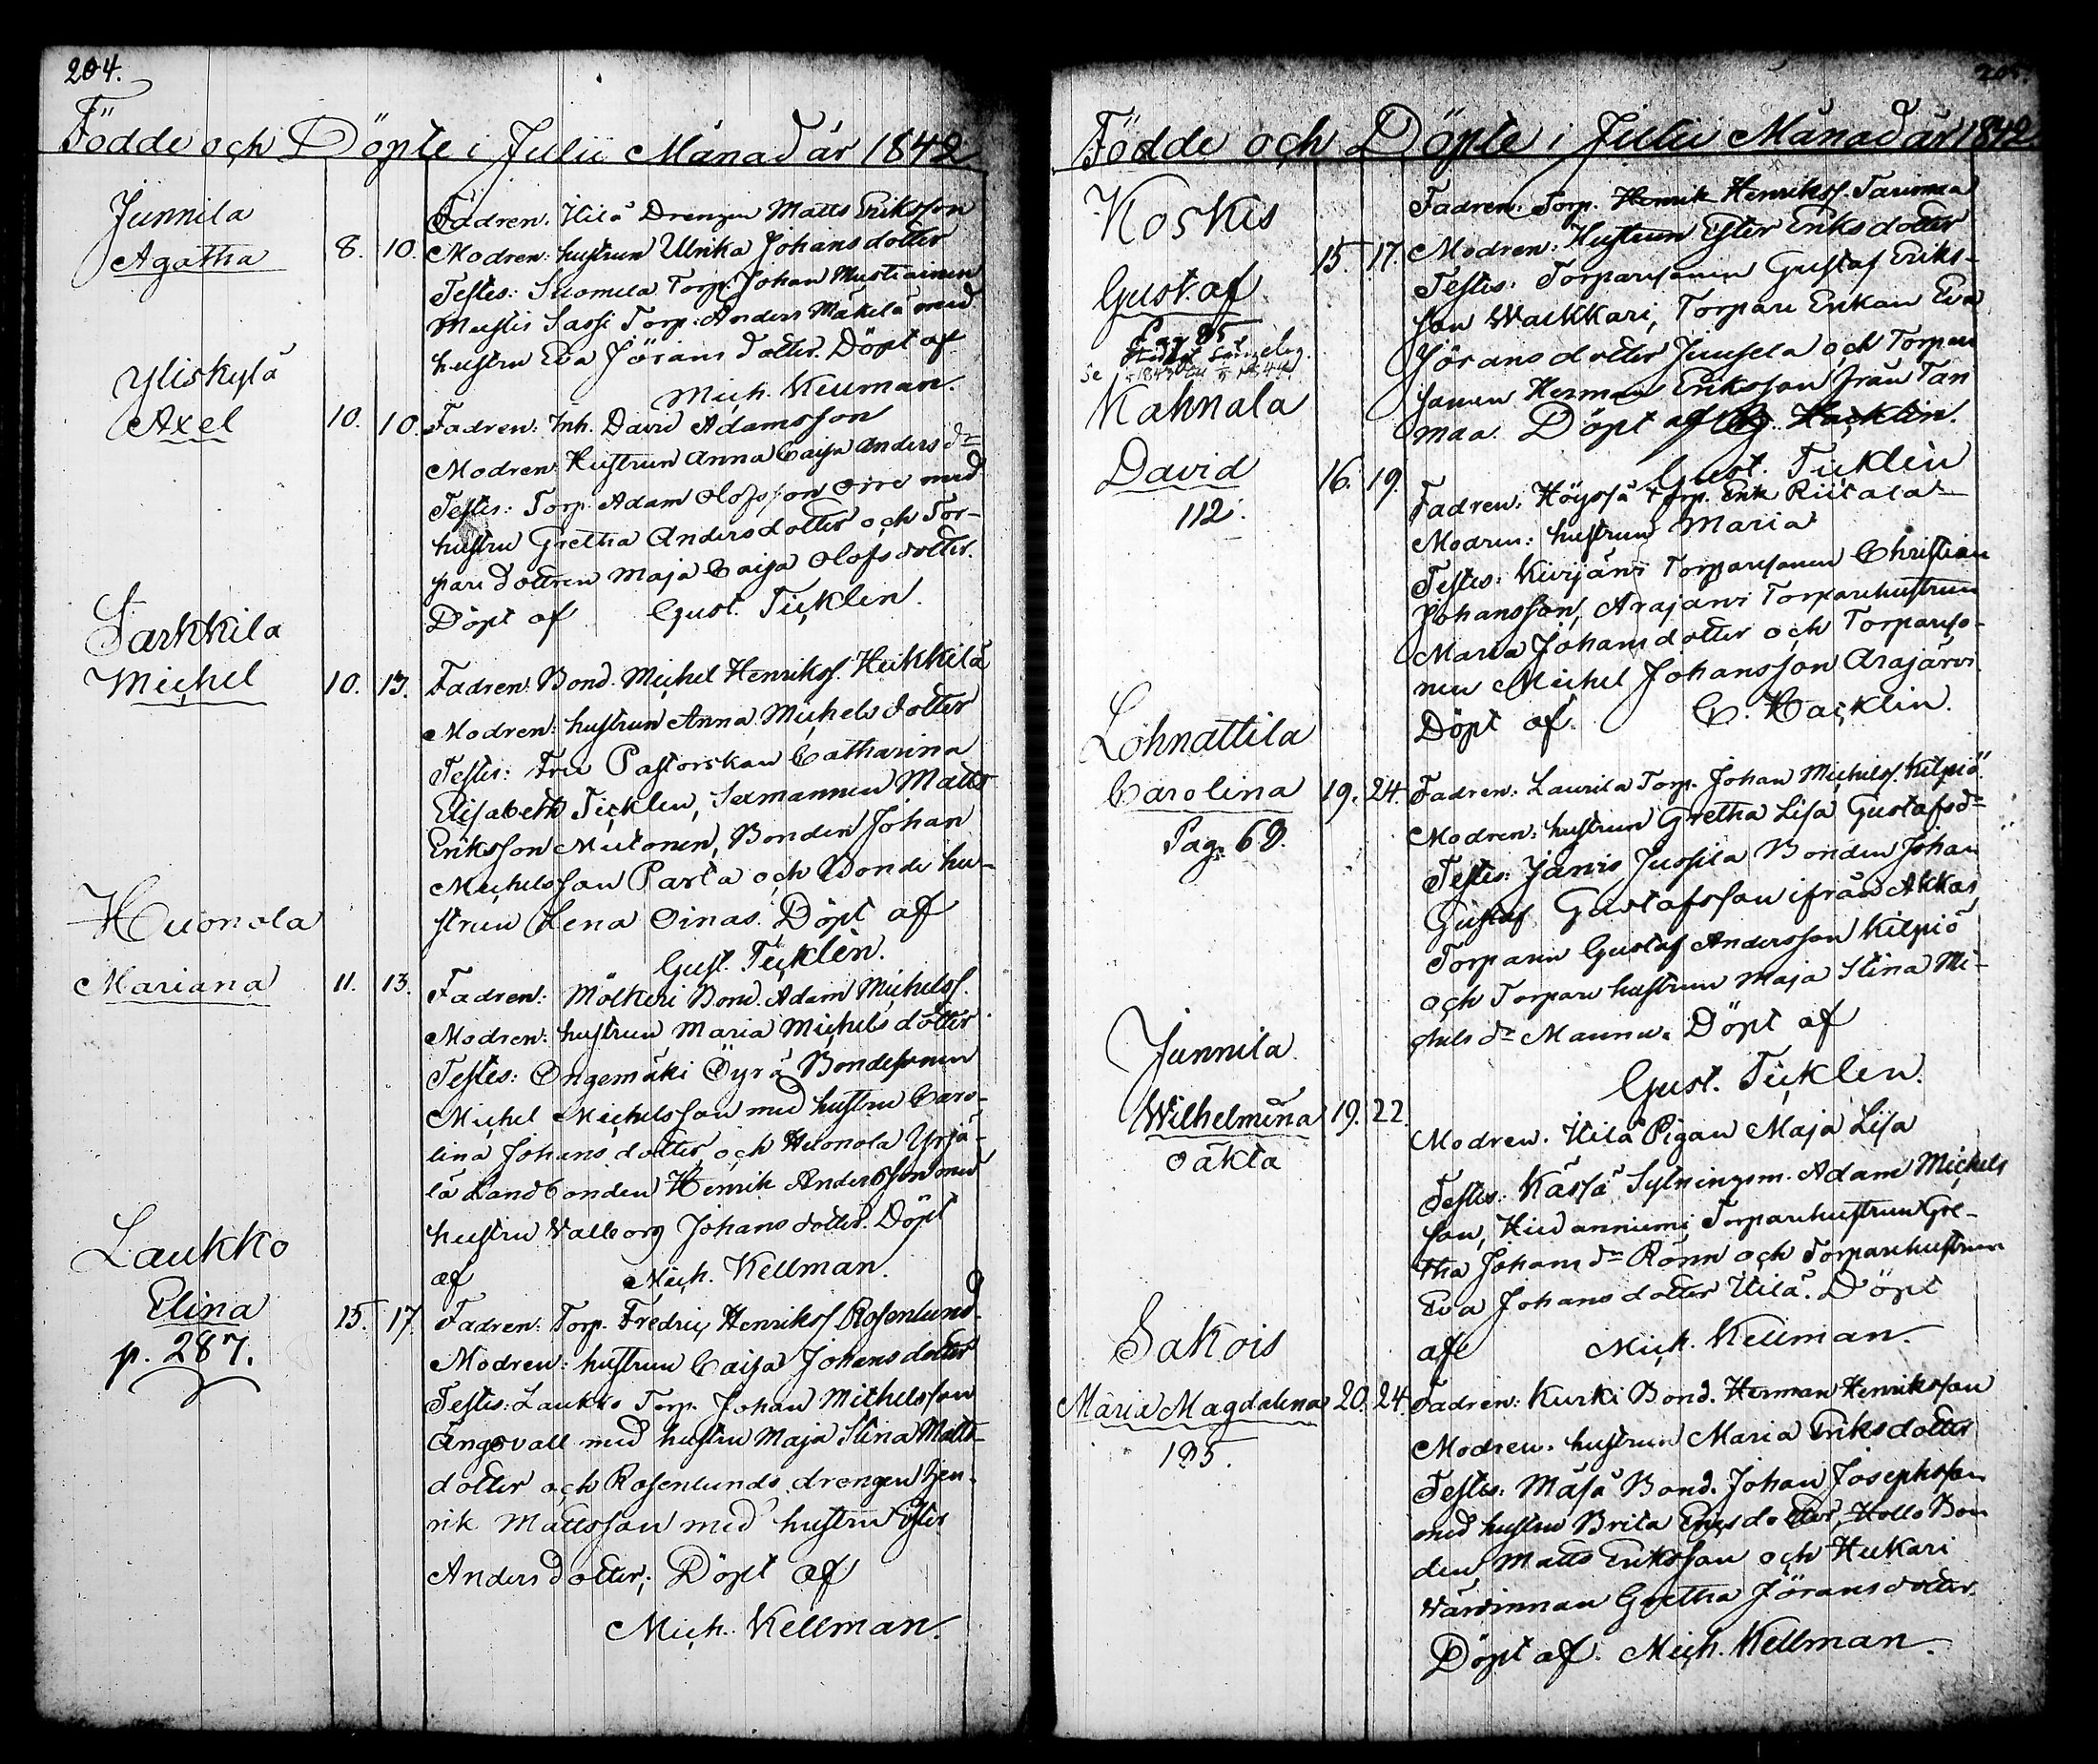 204.
Födde och Döpte i Julii Månad år 1842
Junnila
Agatha 8. 10.
Fadren: Uilä Drengen Matts Eriksson
Modren: hustrun Ulrika Johansdotter
Testes: Suomela Torp. Johan Mustiainen
Mustis Sassi Torp: Anders Mäkelä med
hustru Eva Jöransdotter. Döpt af
Mich. Kellman.
Yliskylä
Axel 10. 10.
Fadren: Inh. David Adamsson
Modren: Hustrun Anna Caisa Andersdr
Testes: Torp. Adam Olofsson Orre med
hustru Gretha Andersdotter och Tor-
paredottren Maja Caisa Olofsdotter.
Döpt af Gust. Ticklen.
Sarkkila
Michel 10. 13.
Fadren: Bond. Michel Henrikss. Heikkilä
Modren: hustrun Anna Michelsdotter
Testes: Fru Pastorskan Catharina
Elisabeth Ticklen, Sexmannen Matts
Eriksson Mutonen, Bonden Johan
Michelsson Parta och Bondehu-
strun Lena Oinas. Döpt af
Gust. Ticklen.
Huonola
Mariana 11. 13.
Fadren: Mölkeri Bond. Adam Michelss.
Modren: hustrun Maria Michelsdotter
Testes: Ongemäki Öyrä Bondesonen
Michel Michelsson med hustru Caro-
lina Johansdotter och Huonola Yrjä-
lä Landbonden Henrik Andersson med
hustru Valborg Johansdotter. Döpt
af Mich. Kellman.
Laukko
Elina 15. 17.
p. 287.
Fadren: Torp. Fredric Henrikss. Rosenlund.
Modren: hustrun Caisa Johansdotter
Testes: Laukko Torp. Johan Michelsson
Ängsvall med hustru Maja Stina Matts-
dotter och Rosenlunds drengen Hen-
rik Mattsson med hustru Ester
Andersdotter; Döpt af
Mich. Kellman.
205.
Födde och Döpte i Julii Månad år 1842.
Koskis
Gustaf 15. 17.
Pag 85
Se
Fadren: Torp. Henrik Henrikss. Tanmaa
Modren: Hustrun Ester Eriksdotter
Testes: Torparesonen Gustaf Eriks-
son Wackkari, Torpare Enkan Eva
Jöransdotter Juusela och Torpare
sonen Herman Eriksson från Tan
maa. Döpt af C. Hacklin.
Gust. Ticklén
Kahnala
David 16. 19.
112.
Fadren: Höyssä Torp. Erik Riitala
Modren: hustrun Maria
Testes: Kivijärvi Torparesonen Christian
Johansson, Arajärvi Torparehustrun
Maria Johansdotter och Torpareso-
nen Michel Johansson Arajärvi.
Döpt af C. Hacklin.
Lohnattila
Carolina 19. 24.
Pag. 69.
Fadren: Laurila Torp. Johan Michelss. Kilpiö.
Modren: hustrun Gretha Lisa Gustafsdr
Testes: Janis Jussila Bonden Johan
Gustaf Gustafsson ifrån Akkas,
Torparen Gustaf Andersson Kilpiö
och Torpare hustrun Maja Stina Mi-
chelsdr Maunu. Döpt af
Gust. Ticklen.
Junnila
Wilhelmina 19. 22.
oäkta
Modren: Uilä Pigan Maja Lisa
Testes: Kässä Sytningsm. Adam Michels
son, Hiidanniemi Torparehustrun Gre-
tha Johansdr Rönn och Torparehustrun
Eva Johansdotter Uilä. Döpt
af Mich. Kellman.
Sakois
Maria Magdalena 20. 24.
195.
Fadren: Kurki Bond. Herman Henriksson
Modren: hustrun Maria Eriksdotter
Testes: Mäsä Bond. Johan Josephsson
med hustru Brita Ericsdotter, Hollo Bon
den Matts Eriksson och Heikari
Värdinnan Gretha Jöransdotter.
Döpt af. Mich. Kellman.